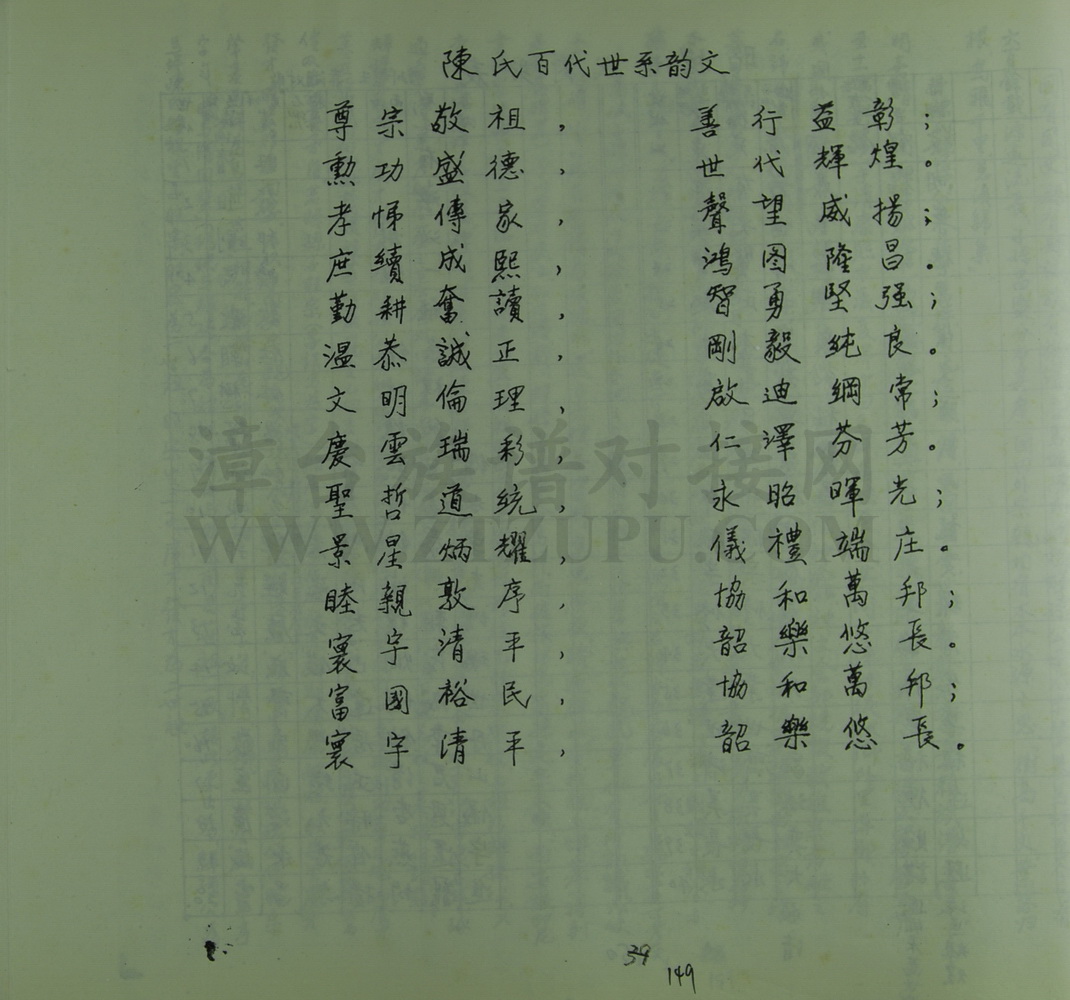 陳氏百代世系韵文
尊宗敬祖，善行益彰；
勳功盛德，世代輝煌。
孝悌傳家，聲望威揚；
庶續成熙，鴻图隆昌。
勤耕奮讀，智勇堅强；
温恭誠正，剛毅純良。
文明倫理，啟迪綱常；
慶雲瑞彩，仁澤芬芳。
聖哲道統，永昭暉光；
景星炳耀，儀禮端庄。
睦親敦序，協和萬邦；
寰宇清平，韶樂悠長。
富國裕民，協和萬邦；
寰宇清平，韶樂悠長。
漳台族谱对接网
WWW.ZTZUPU.COM
39
149